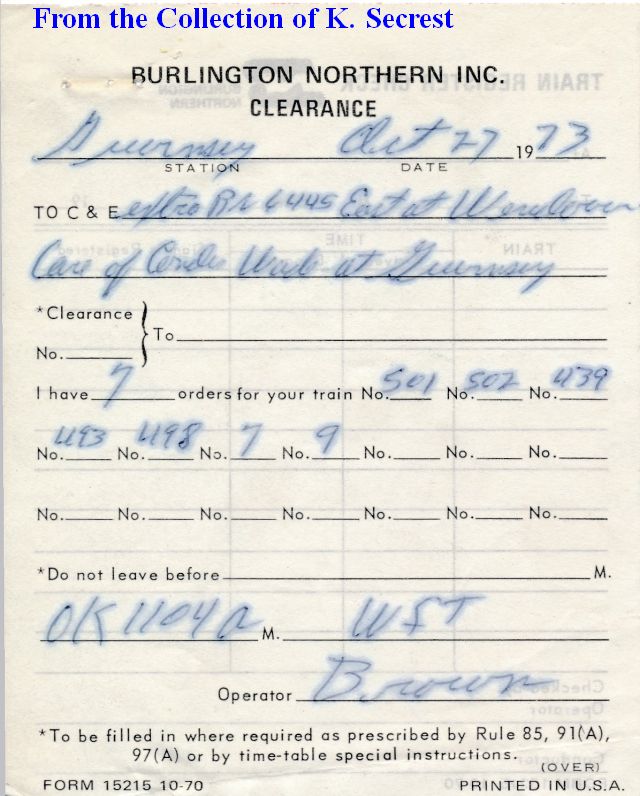 From the Collection of K. Secrest
BURLINGTON NORTHERN INC.
CLEARANCE
Guernsey Oct 27 1973
STATION DATE
TO C & E extra BN 6445 East at Wendover
Care of Condr Wade at Guernsey
*Clearance
No. To
I have 7 orders for your train No. 501 No. 502 No. 439
No. 493 No. 498 No. 7 No. 9 No. No. No.
No. No. No. No. No. No. No.
*Do not leave before M.
OK 1104 A M. WST
Operator Brown
*To be filled in where required as prescribed by Rule 85, 91(A),
97(A) or by time-table special instructions.
(OVER)
FORM 15215 10-70 PRINTED IN U.S.A.